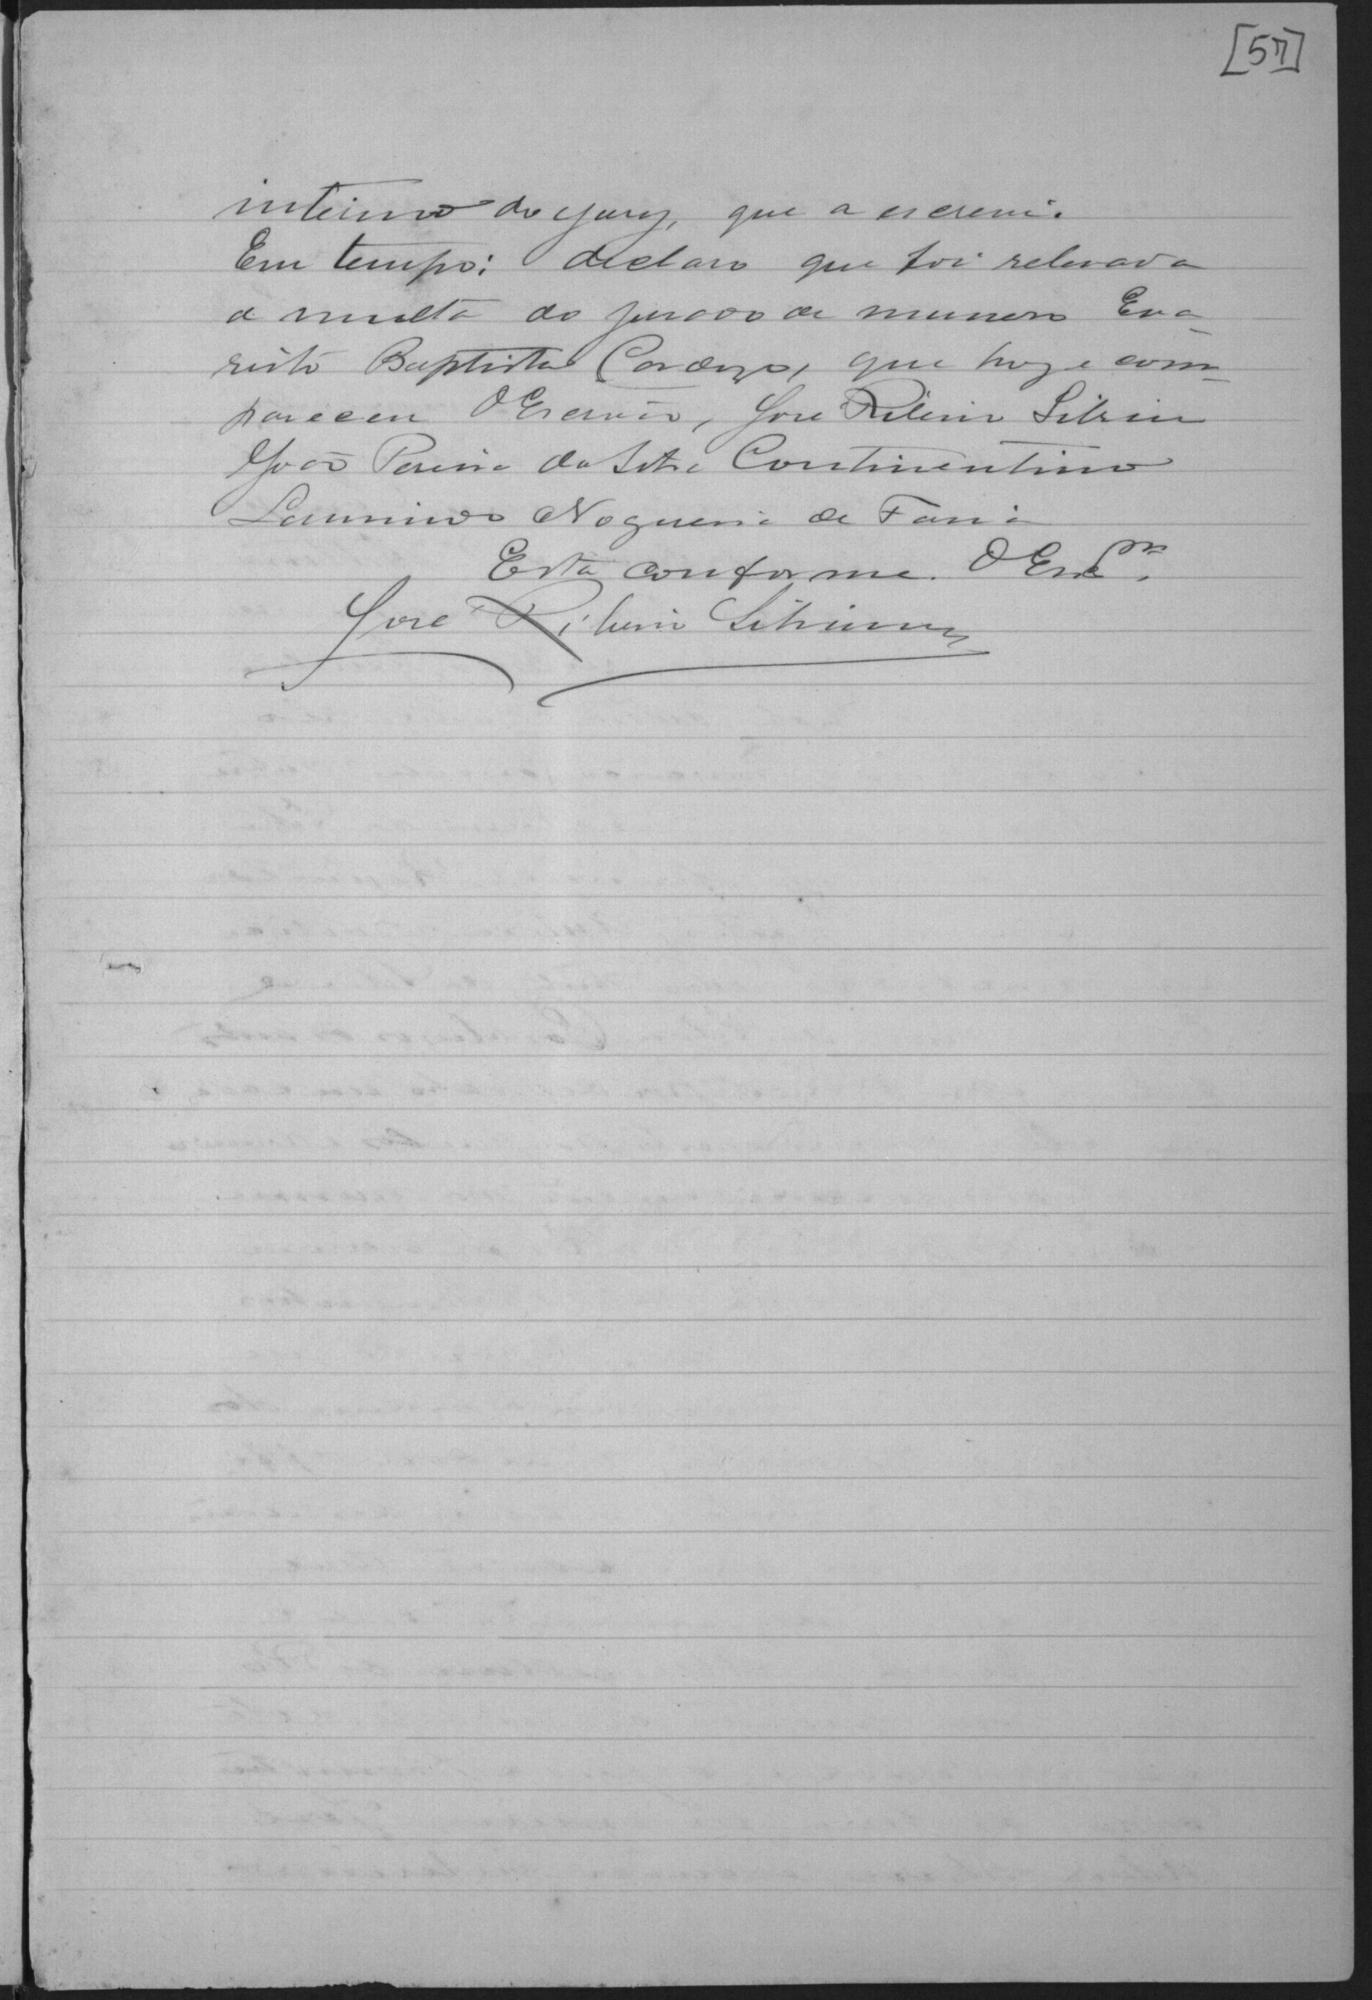 [57]
interino do jury, que a escrevi.
Em tempo: declaro que foi relevada
a multa do jurado de numero Eva
risto Baptista Cardozo, que hoje com
pareceu O Escrivão, José Ribeiro
João Pereira da Silva Continentino
Laurindo Nogueira de Faria
Está conforme. O Escrm.
José Ribeiro